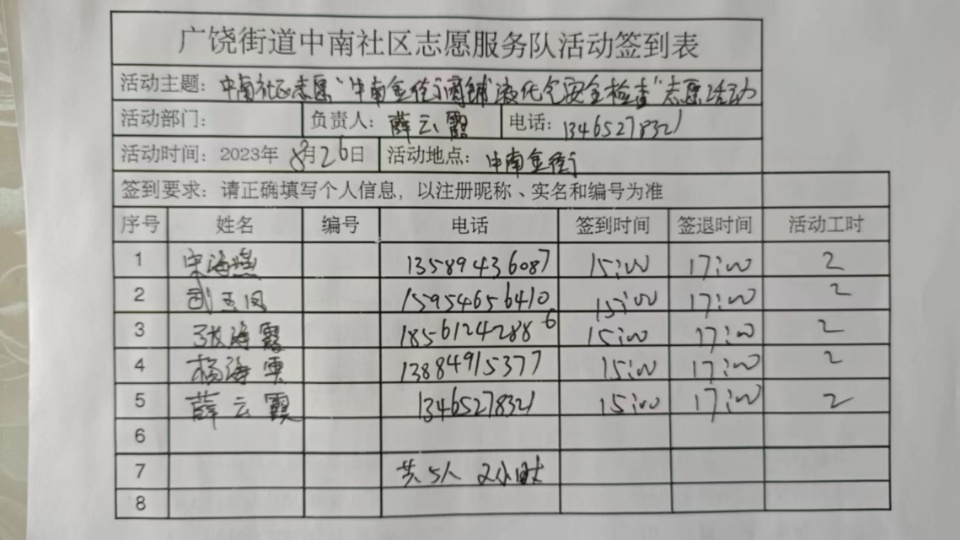 广饶街道中南社区志愿服务队活动签到表
活动主题: 中南社区志愿"中南金街商铺液化气安全检查"志愿活动
活动部门: 负责人: 薛云霞 电话: 13465278321
活动时间: 2023年 8月26日 活动地点: 中南金街
签到要求: 请正确填写个人信息, 以注册昵称、实名和编号为准
序号 姓名 编号 电话 签到时间 签退时间 活动工时
1 宋海燕 13589436087 15:00 17:00 2
2 武玉凤 15954656410 15:00 17:00 2
3 张海霞 18561242886 15:00 17:00 2
4 杨海 13884915377 15:00 17:00 2
5 薛云霞 13465278321 15:00 17:00 2
6
7 共5人 2小时
8